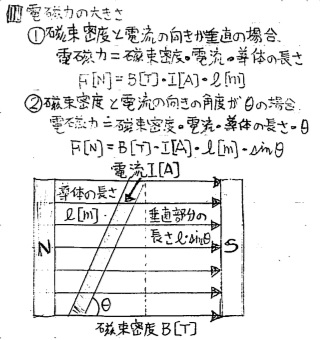 (1)電磁力の大きさ
①磁束密度と電流の向きが垂直の場合.
電磁力=磁束密度・電流・導体の長さ
F[N]=B[T]・I[A]・l[m]
②磁束密度と電流の向きの角度がθの場合.
電磁力=磁束密度・電流・導体の長さ・θ
F[N]=B[T]・I[A]・l[m]・sinθ
電流I[A]
導体の長さ
l[m]
垂直部分の
長さl・sinθ
N
S
θ
磁束密度B[T]